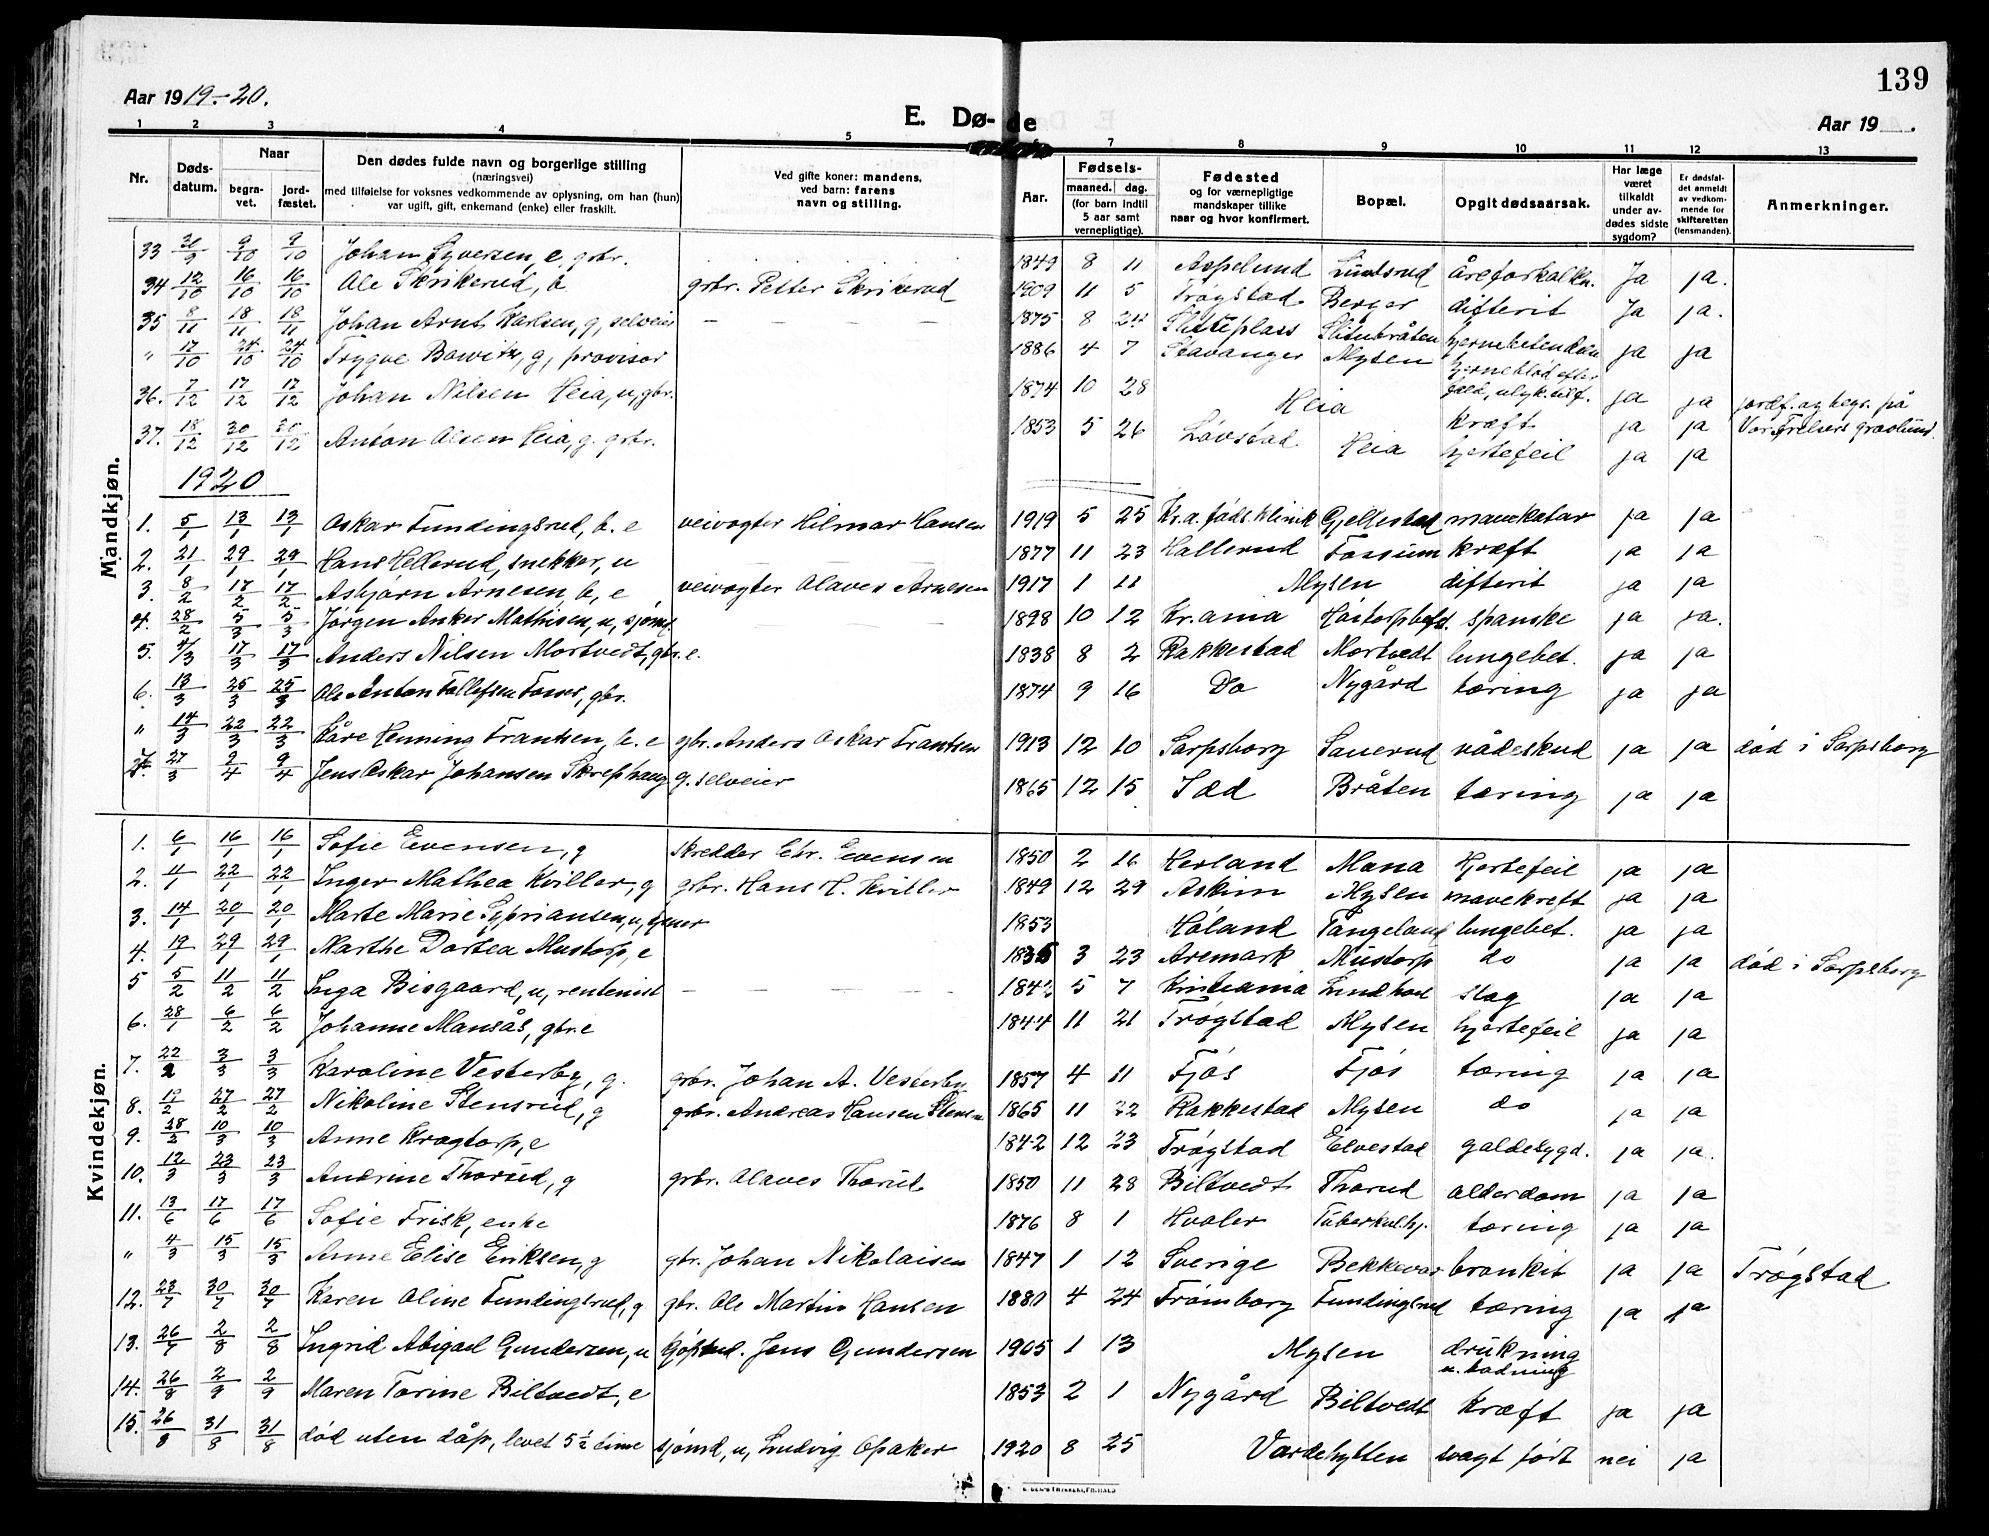 139
Aar 1919.-20.
E. Dø- de
Aar 19   .
1 2 3 4 5 7 8 9 10 11 12 13
Nr. Døds-datum. Naar begra-vet. jord-fæstet. Den dødes fulde navn og borgerlige stilling (næringsvei) med tilføielse for voksnes vedkommende av oplysning, om han (hun) var ugift, gift, enkemand (enke) eller fraskilt. Ved gifte koner: mandens, ved barn: farens navn og stilling. Aar. Fødsels- maaned. dag. (for barn indtil 5 aar samt vernepligtige). Fødested og for værnepligtige mandskaper tillike naar og hvor konfirmert. Bopæl. Opgit dødsaarsak. Har læge været tilkaldt under av-dødes sidste sygdom? Er dødsfal-det anmeldt av vedkom-mende for skifteretten (lensmanden). Anmerkninger.
Mandkjøn.
33 9/10 9/10 Johan Syversen, e, grbr. 1849 8 11 Aspelund åreforkalkn. Ja ja.
34 12/10 16/10 16/10 Ole Skrikerud, b grbr. Petter Skrikerud 1909 11 5 Trøgstad Berger difterit Ja ja.
35 8/11 18/11 18/11 Johan Arnt Karlsen, g, selveier — — — — 1875 8 24 Slitubråten hjernebetendelse ja ja
" 17/10 24/10 24/10 Trygve Bowitz, g, provisor 1886 4 7 Stavanger Mysen hjerneblød efter fald, ulyk.tilf. ja ja jordf. og begr. på Vor Frelsers gravlund.
36. 7/12 17/12 17/12 Johan Nilsen Heia, u, gbr. 1874 10 28 Heia kræft ja ja
37. 18/12 30/12 30/12 Anton Olsen Heia, g. grbr. 1853 5 26 Løvstad Heia hjertefeil ja ja
1920
1. 5/1 13/1 13/1 Oskar Fundingsrud, b. e veivogter Hilmar Hansen 1919 5 25 Kr.a. føds. klinik Gjellestad mavekatar ja ja
2. 21/1 29/1 29/1 Hans Hellerud, snekker, u — — — — 1877 11 23 Hallerud Fossum kræft ja ja
3. 8/2 17/2 17/2 Asbjørn Arnesen, b, e veivogter Olaves Arnesen 1917 1 11 Mysen difterit ja ja
4. 28/2 5/3 5/3 Jørgen Anker Mathisen, u, sjømd. — — — 1898 10 12 Kr.ania spanske ja ja.
5. 4/3 17/3 17/3 Anders Nilsen Mortvedt, gbr. e. 1838 8 2 Rakkestad Mortvedt lungebet. ja ja
6. 13/3 25/3 25/3 Ole Anton Tollefsen Fosser, gbr. 1874 9 16 Do Nygård tæring ja ja
" 14/3 22/3 22/3 Kåre Henning Frantsen, b. e gbr. Anders Oskar Frantsen 1913 12 10 Sarpsborg Sauerud vådeskud ja ja død i Sarpsborg
7. 27/3 9/4 9/4 Jens Oskar Johansen Skrephaug g. selveier 1865 12 15 Idd Bråten tæring ja ja
Kvindekjøn.
1. 6/1 16/1 16/1 Sofie Evensen, g skredder Chr. Evensen 1850 2 16 Herland Mana Hjertefeil ja ja
2. 4/1 22/1 22/1 Inger Mathea Kviller, g grbr. Hans H. Kviller 1849 12 29 Askim Mysen mavekreft ja ja
3. 14/1 20/1 20/1 Marte Marie Sypriansen, u, tjener 1853 Høland Tangeland lungebet. ja ja
4. 19/1 29/1 29/1 Marthe Dortea Mustorp, e 1835 3 23 Aremark Mustorp do ja ja død i Sarpsborg
5 5/2 11/2 11/2 Inga Bisgaard, u, rentenist — — — — 1842 5 7 Kristiania Lundhard slag ja ja
6. 28/1 6/2 6/2 Johanne Mansås, gbr. e 1844 11 21 Trøgstad Mysen hjertefeil ja ja
7. 22/2 3/3 3/3 Karoline Vesterby, g. grbr. Johan A. Vesterby 1857 4 11 Fjøs Fjøs tæring ja ja
8. 19/2 27/2 27/2 Nikoline Stensrud, g grbr. Andreas Hansen Stensr 1865 11 22 Rakkestad Mysen do ja ja
9. 28/2 10/3 10/3 Anne Kragtorp, e 1842 12 23 Trøgstad Elvestad galdesygd. ja ja.
10. 12/3 23/3 23/3 Andrine Thorud, g grbr. Olaves Thorud 1850 11 28 Biltvedt Thorud alderdom ja ja
11. 13/6 17/6 17/6 Sofie Frisk, enke 1876 8 1 Hvaler Tuberkul.hj. tæring ja ja
" 4/3 15/3 15/3 Anne Elise Eriksen, g gbr. Johan Nikolaisen 1847 1 12 Sverige Bekkevar bronkit ja ja Trøgstad
12. 23/7 30/7 30/7 Karen Oline Fundingsrud, g gbr. Ole Martin Hansen 1880 4 24 Trømborg Fundingsrud tæring ja ja
13. 26/7 2/8 2/8 Ingrid Abigael Gundersen, u kjøpmd. Jens Gundersen 1905 1 13 Mysen drukning u. badning
14. 26/8 2/9 2/9 Maren Torine Biltvedt, e 1853 2 1 Nygård Biltvedt Kræft ja ja
15. 26/8 31/8 31/8 død uten dåp, levet 5½ time sjømd, u, Ludvig Opaker 1920 8 25 Vardehytten svagt født nei ja